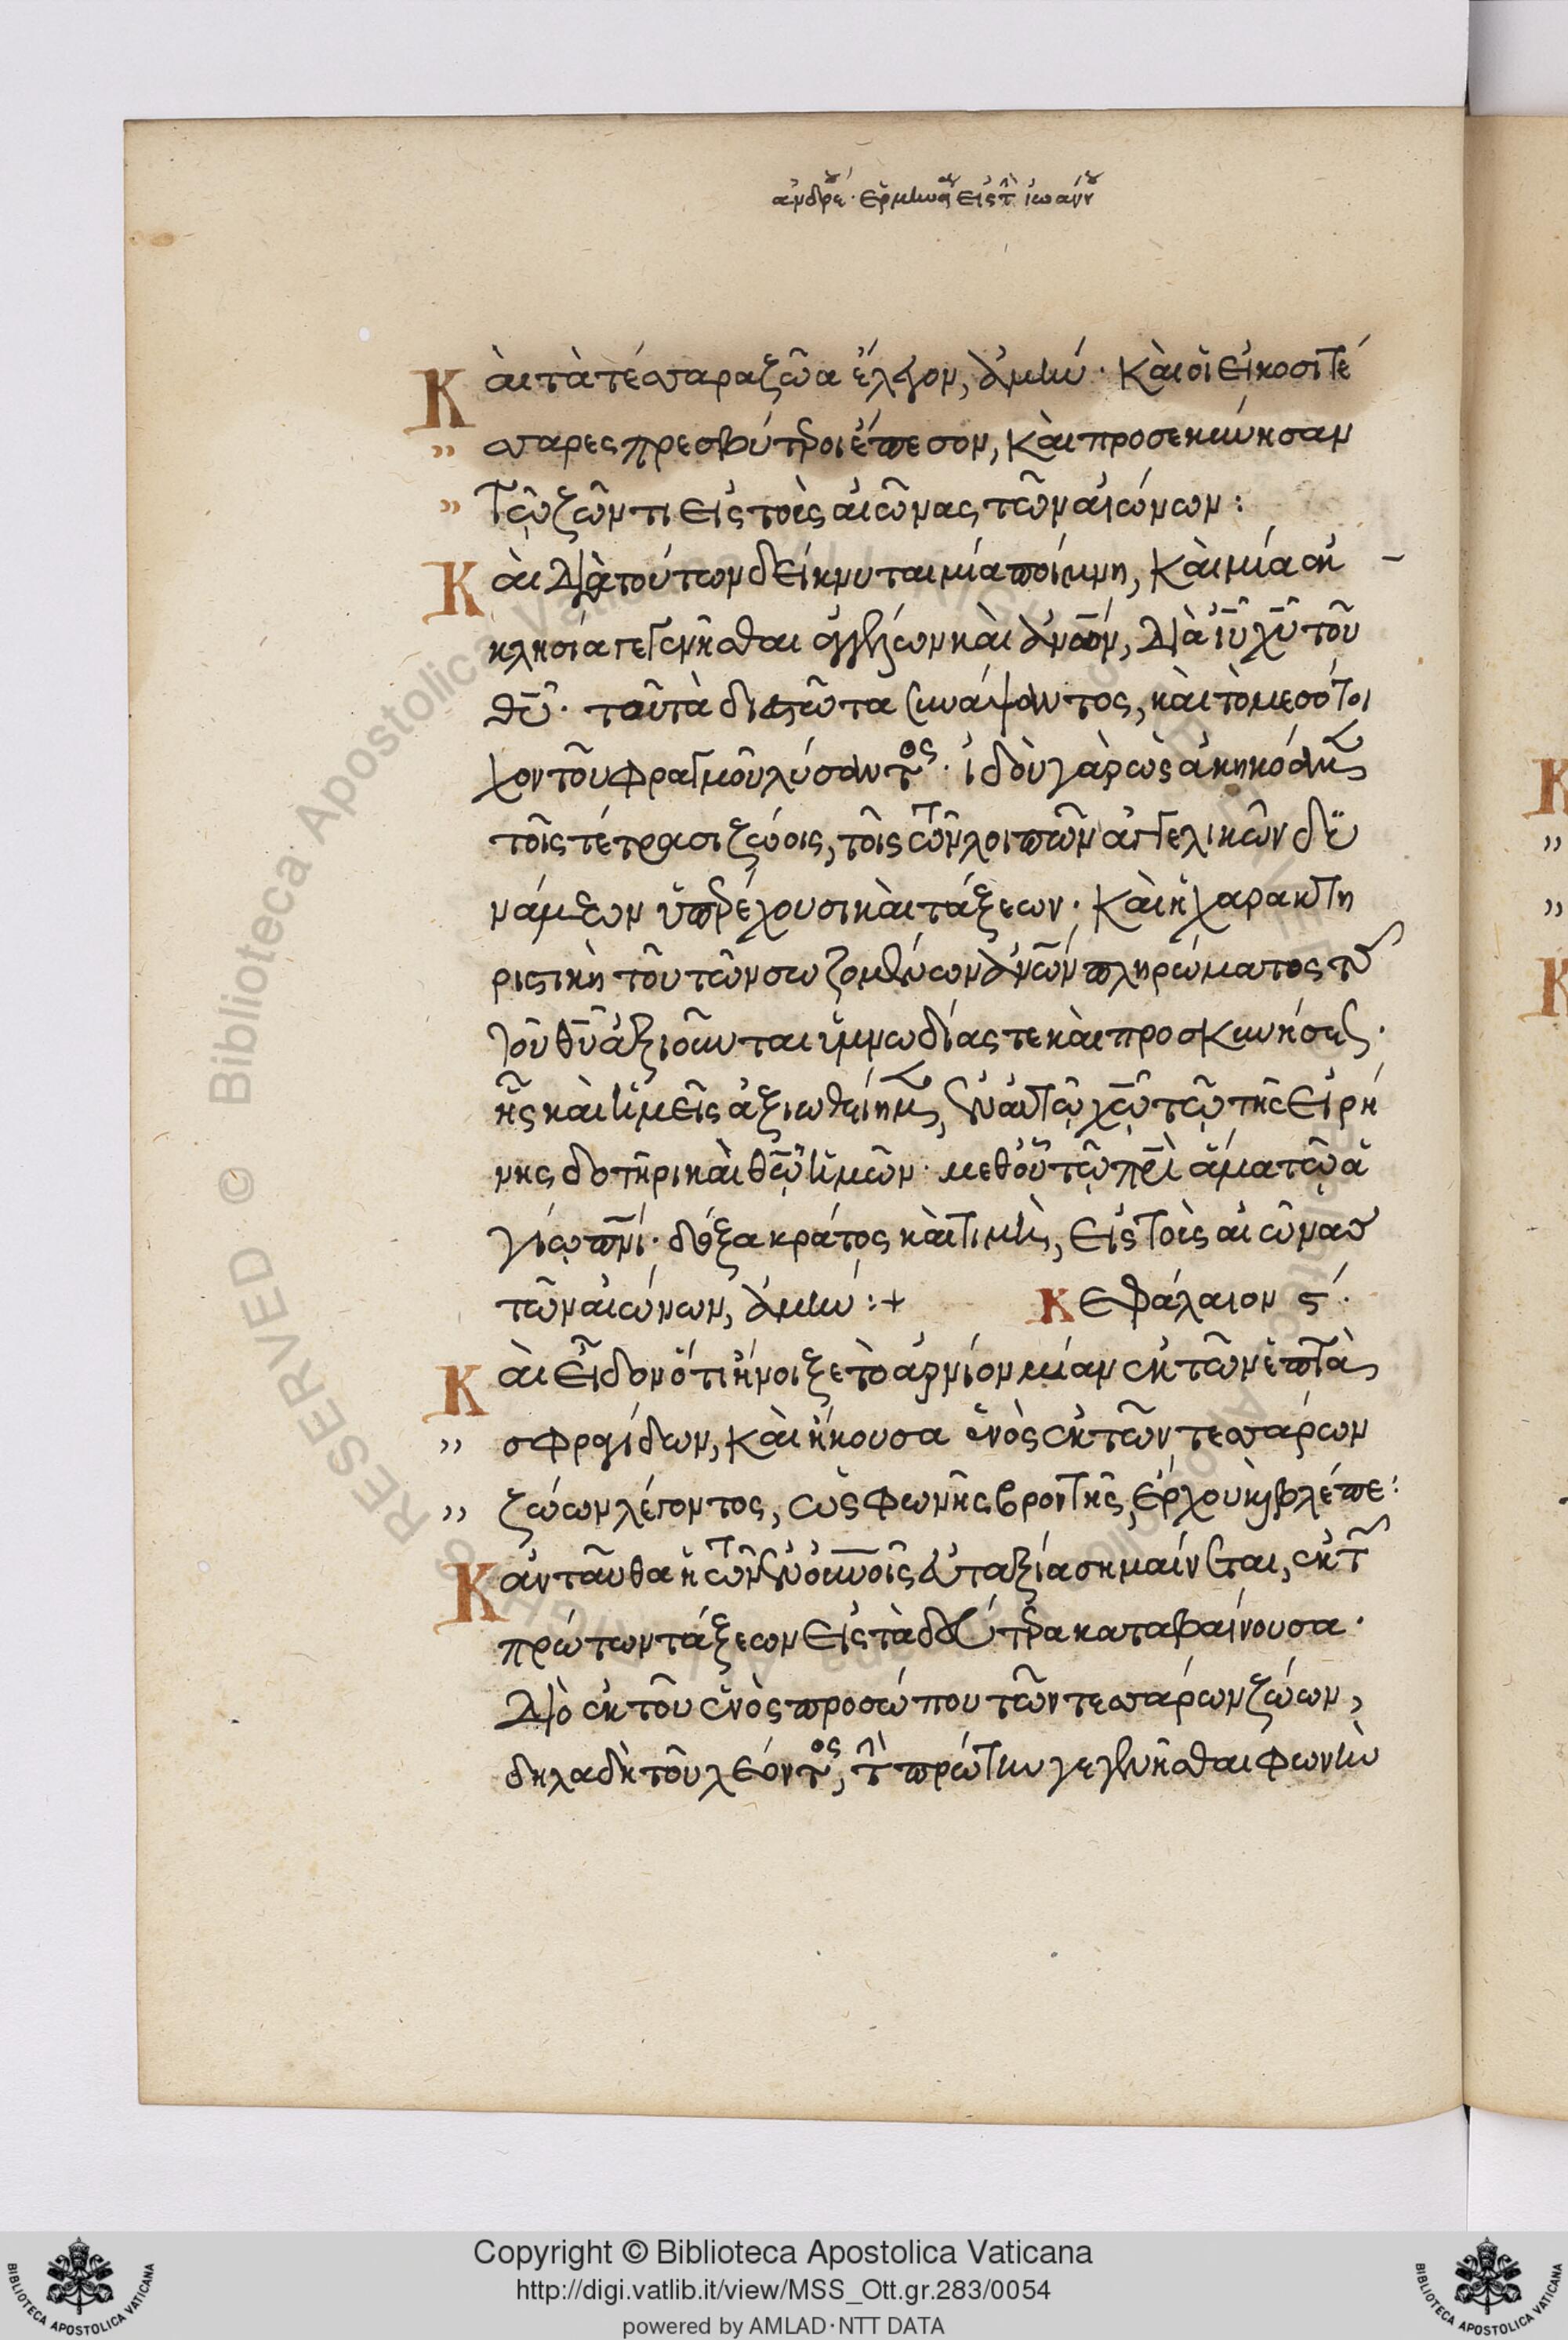 ἀνδρέου ἑρμηνεία εἰς τὴν ἰωάννου
Καὶ τὰ τέσσαρα ζῶα ἔλεγον, ἀμήν· καὶ οἱ εἰκοσιτέ
σσαρες πρεσβύτεροι ἔπεσον, καὶ προσεκύνησαν
τῷ ζῶντι εἰς τοὺς αἰῶνας τῶν αἰώνων:
Καὶ διὰ τούτων δείκνυται μία ποίμνη, καὶ μία ἐκ
κλησία γεγενῆσθαι ἀγγέλων καὶ ἀνων, διὰ ιυ χυ τοῦ
θυ· ταῦτα διεστῶτα συνάψαντος, καὶ τὸ μεσότοι
χον τοῦ φραγμοῦ λύσαντος· ἰδοὺ γὰρ ὡς ἀκηκόαμεν
τοῖς τέτρασι ζώοις, τοῖς τῶν λοιπῶν ἀγγελικῶν δυ
νάμεων ὑπερέχουσι καὶ τάξεων· καὶ ἡ χαρακτη
ριστικὴ τοῦ τῶν σωζομένων ἀνων πληρώματος τοῦ
λοῦ θυ ἀξιοῦνται ὑμνωδίας τε καὶ προσκυνήσεως·
ἧς καὶ ἡμεῖς ἀξιωθείημεν, ἐν αὐτῷ χω τῷ τῆς εἰρή
νης δοτῆρι καὶ θω ἡμῶν· μεθ' οὗ τῷ πρι ἅμα τῷ ἁ
γίω πνι· δόξα κράτος καὶ τιμὴ, εἰς τοὺς αἰῶνας
τῶν αἰώνων, ἀμήν:+ Κεφάλαιον ς΄.
Καὶ εἶδον ὅτι ἤνοιξε τὸ ἀρνίον μίαν ἐκ τῶν ἑπτὰ
σφραγίδων, καὶ ἤκουσα ἑνὸς ἐκ τῶν τεσσάρων
ζώων λέγοντος, ὡς φωνῆς βροντῆς, ἔρχου καὶ βλέπε:
Κἀνταῦθα ἡ τῶν ἐν οὐνοῖς εὐταξία σημαίνεται, ἐκ τῶν
πρώτων τάξεων εἰς τὰ δεύτερα καταβαίνουσα·
διὸ ἐκ τοῦ ἑνὸς προσώπου τῶν τεσσάρων ζώων,
δηλαδὴ τοῦ λέοντος, τὴν πρώτην γεγενῆσθαι φωνὴν
Copyright © Biblioteca Apostolica Vaticana
http://digi.vatlib.it/view/MSS_Ott.gr.283/0054
powered by AMLAD·NTT DATA